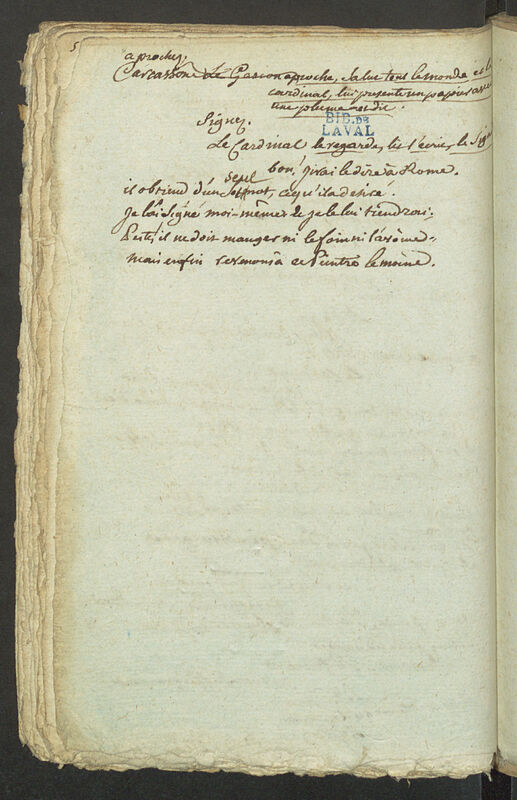 5
aprochez,
Carcassone Le Gascon aproche, Salue tout le monde et le
cardinal, lui presente un papier avec
une plume et dit.
Signez.
BIB. DE
LAVAL
Le Cardinal le regarde, lit l'ecrit, le Signe
bon! j'irai le dire à Rome.
il obtiend d'un seul mot, ce qu'il a desiré.
Je l'ai Signé moi-même & je le lui tiendrai.
Peste, il ne doit manger ni le foin ni l'avoine
mais enfin revenons à ce Peintre le moine.